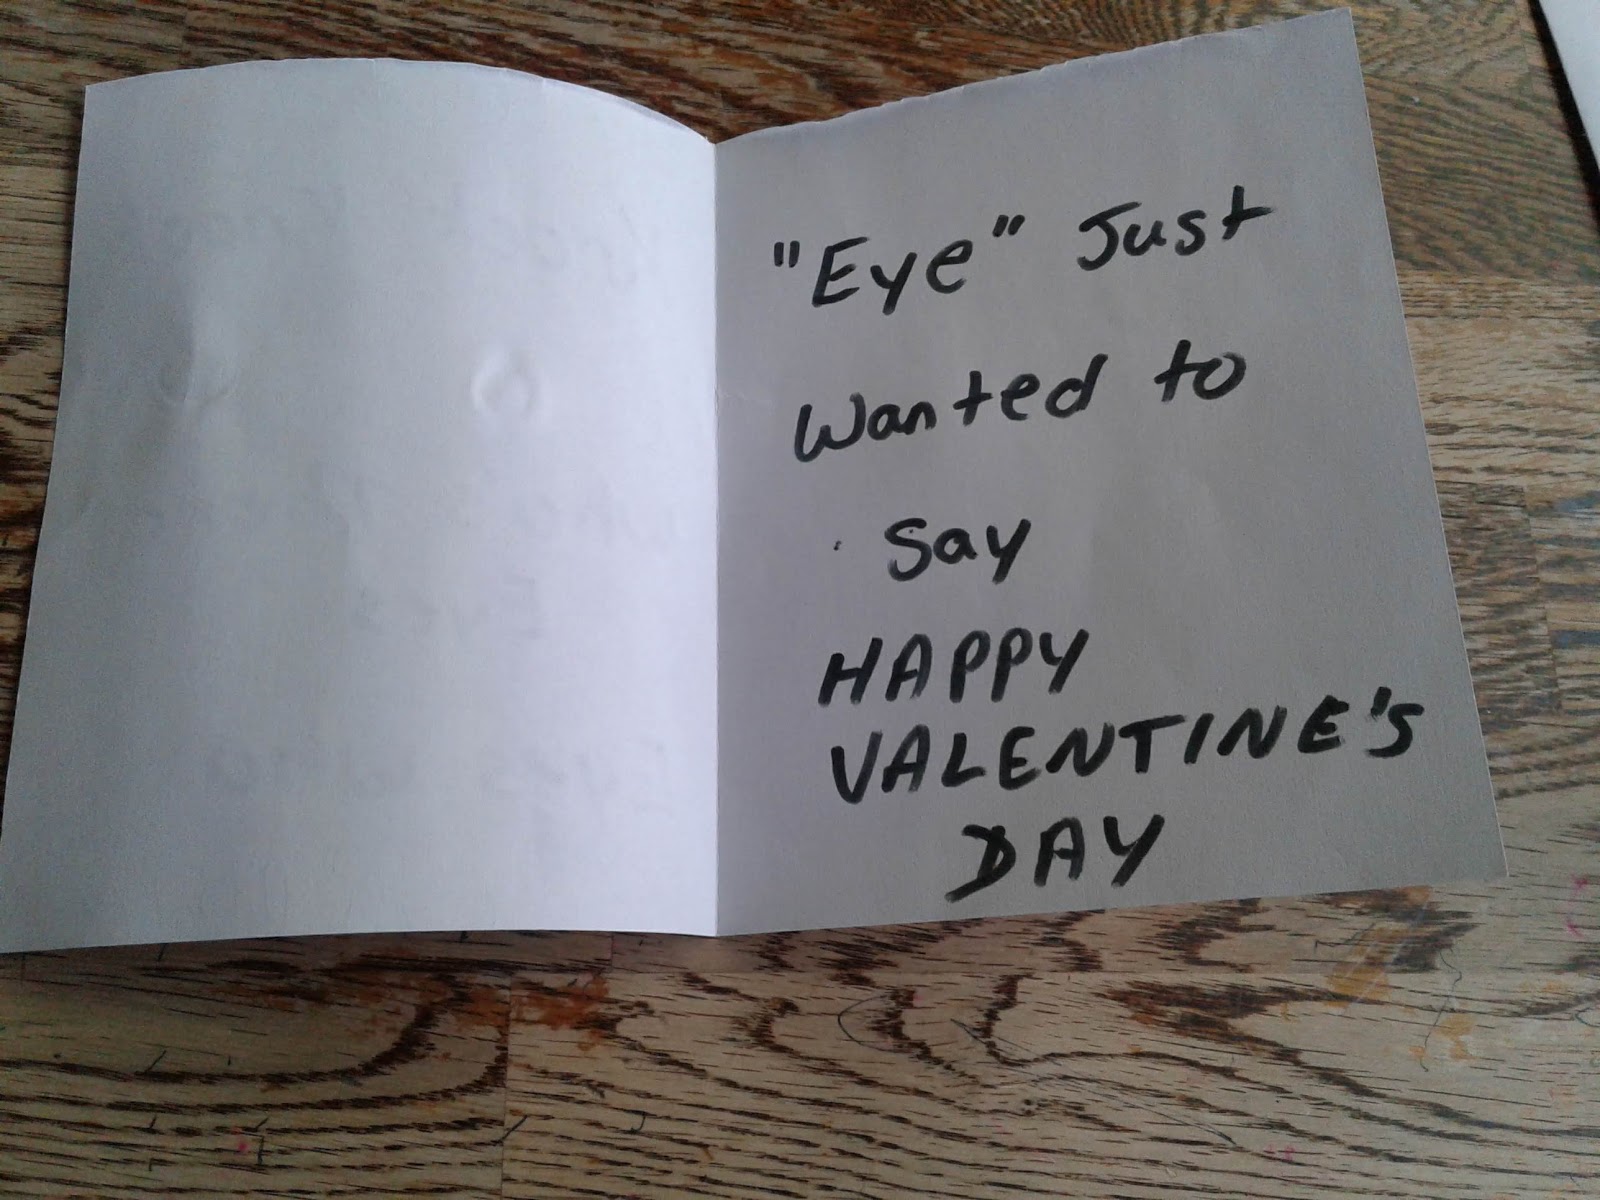 "Eye" Just
Wanted to
Say
HAPPY
VALENTINE'S
DAY